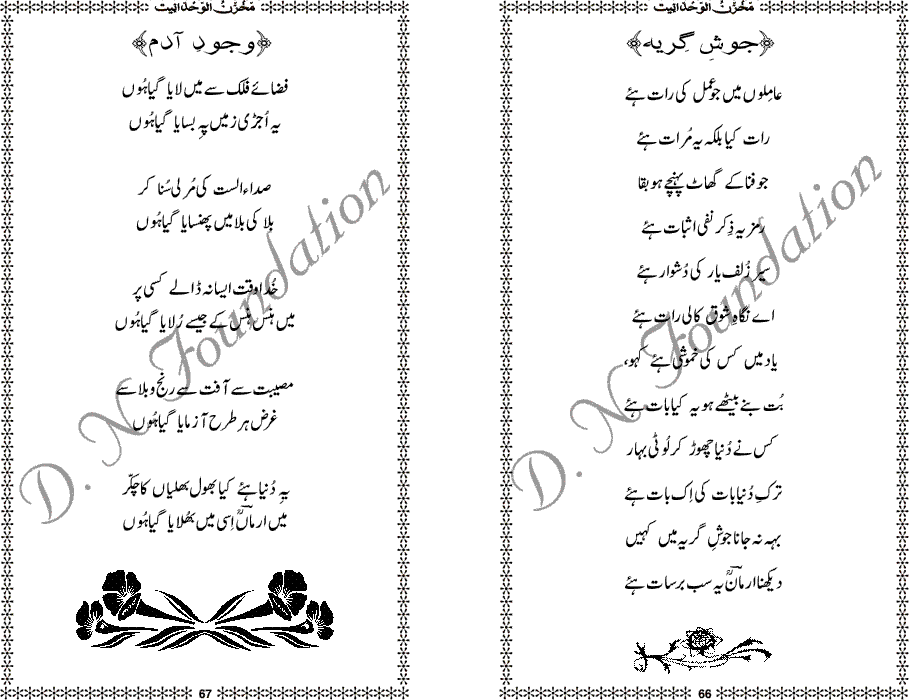 مَخْزَنُ الوَحْدَانِیت
﴿جوشِ گِریہ﴾
عاملوں میں جو عمل کی رات ہئے
رات کیا بلکہ یہ مُرات ہئے
جو فنا کے گھاٹ پہنچے ہو بقا
رمز یہ ذِکر نفی اثبات ہئے
سیرِ زُلف یار کی دُشوار ہئے
اے نگاہِ شوق کالی رات ہئے
یاد میں کس کی خموشی ہئے کہو،
بُت بنے بیٹھے ہو یہ کیا بات ہئے
کس نے دُنیا چھوڑ کر لُوٹی بہار
ترکِ دُنیا بات کی اِک بات ہئے
بہہ نہ جانا جوشِ گریہ میں کہیں
دیکھنا ارمانؔ یہ سب برسات ہئے
66
مَخْزَنُ الوَحْدَانِیت
﴿وجودِ آدم﴾
فضائے فلک سے میں لایا گیا ہُوں
یہ اُجڑی زمیں پہِ بسایا گیا ہُوں
صداء الست کی مُرلی سُنا کر
بلا کی بلا میں پھنسایا گیا ہُوں
خُدا وقت ایسا نہ ڈالے کسی پر
میں ہنس ہنس کے جیسے رُلایا گیا ہُوں
مصیبت سے آفت سے رنج و بلا سے
غرض ہر طرح آزمایا گیا ہُوں
یہ دُنیا ہئے کیا بھول بھلیاں کا چکّر
میں ارمانؔ اِسی میں بھُلایا گیا ہُوں
67
D. N Foundation
D. N Foundation